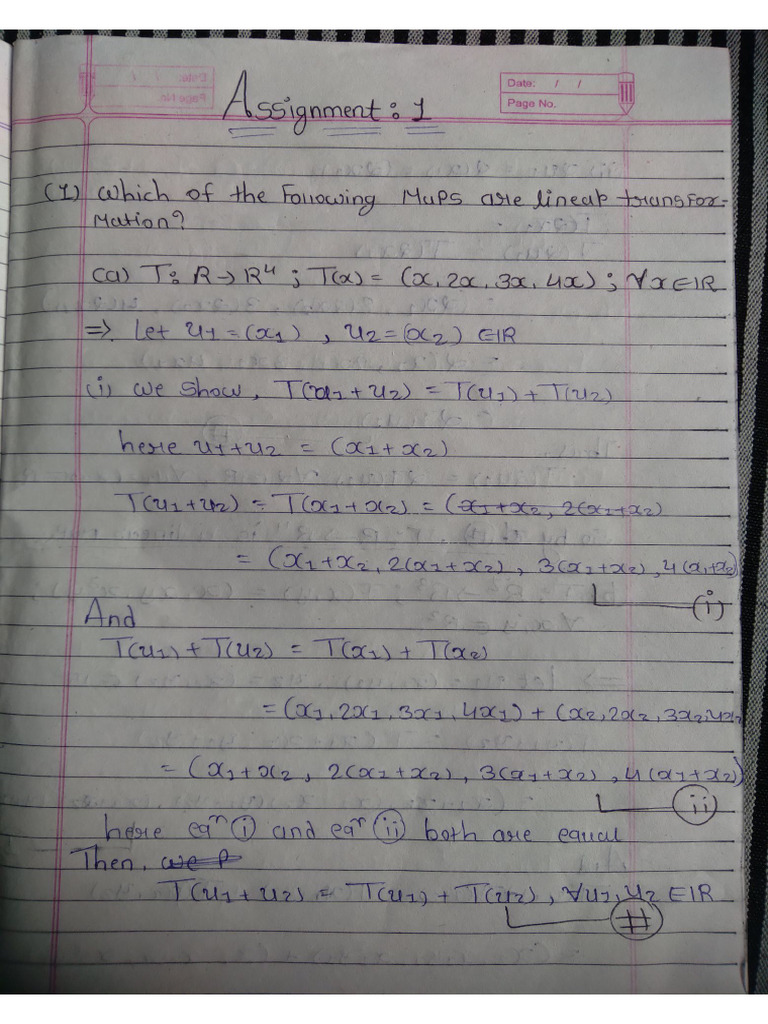 Date: / /
Page No.
Assignment: 1
(1) Which of the Following Maps are linear transfor-
mation?
(a) T: R → R⁴ ; T(x) = (x, 2x, 3x, 4x) ; ∀x∈IR
⇒ Let u1 = (x1) , u2 = (x2) ∈IR
(i) we show, T(u1 + u2) = T(u1) + T(u2)
here u1+u2 = (x1+x2)
T(u1+u2) = T(x1+x2) = (x1+x2, 2(x1+x2)
= (x1+x2, 2(x1+x2), 3(x1+x2), 4(x1+x2)
(i)
And
T(u1) + T(u2) = T(x1) + T(x2)
= (x1, 2x1, 3x1, 4x1) + (x2, 2x2, 3x2, 4x2
= (x1+x2, 2(x1+x2), 3(x1+x2), 4(x1+x2)
(ii)
here eqⁿ (i) and eqⁿ (ii) both are equal
Then,
T(u1+u2) = T(u1) + T(u2), ∀u1, u2 ∈IR
#